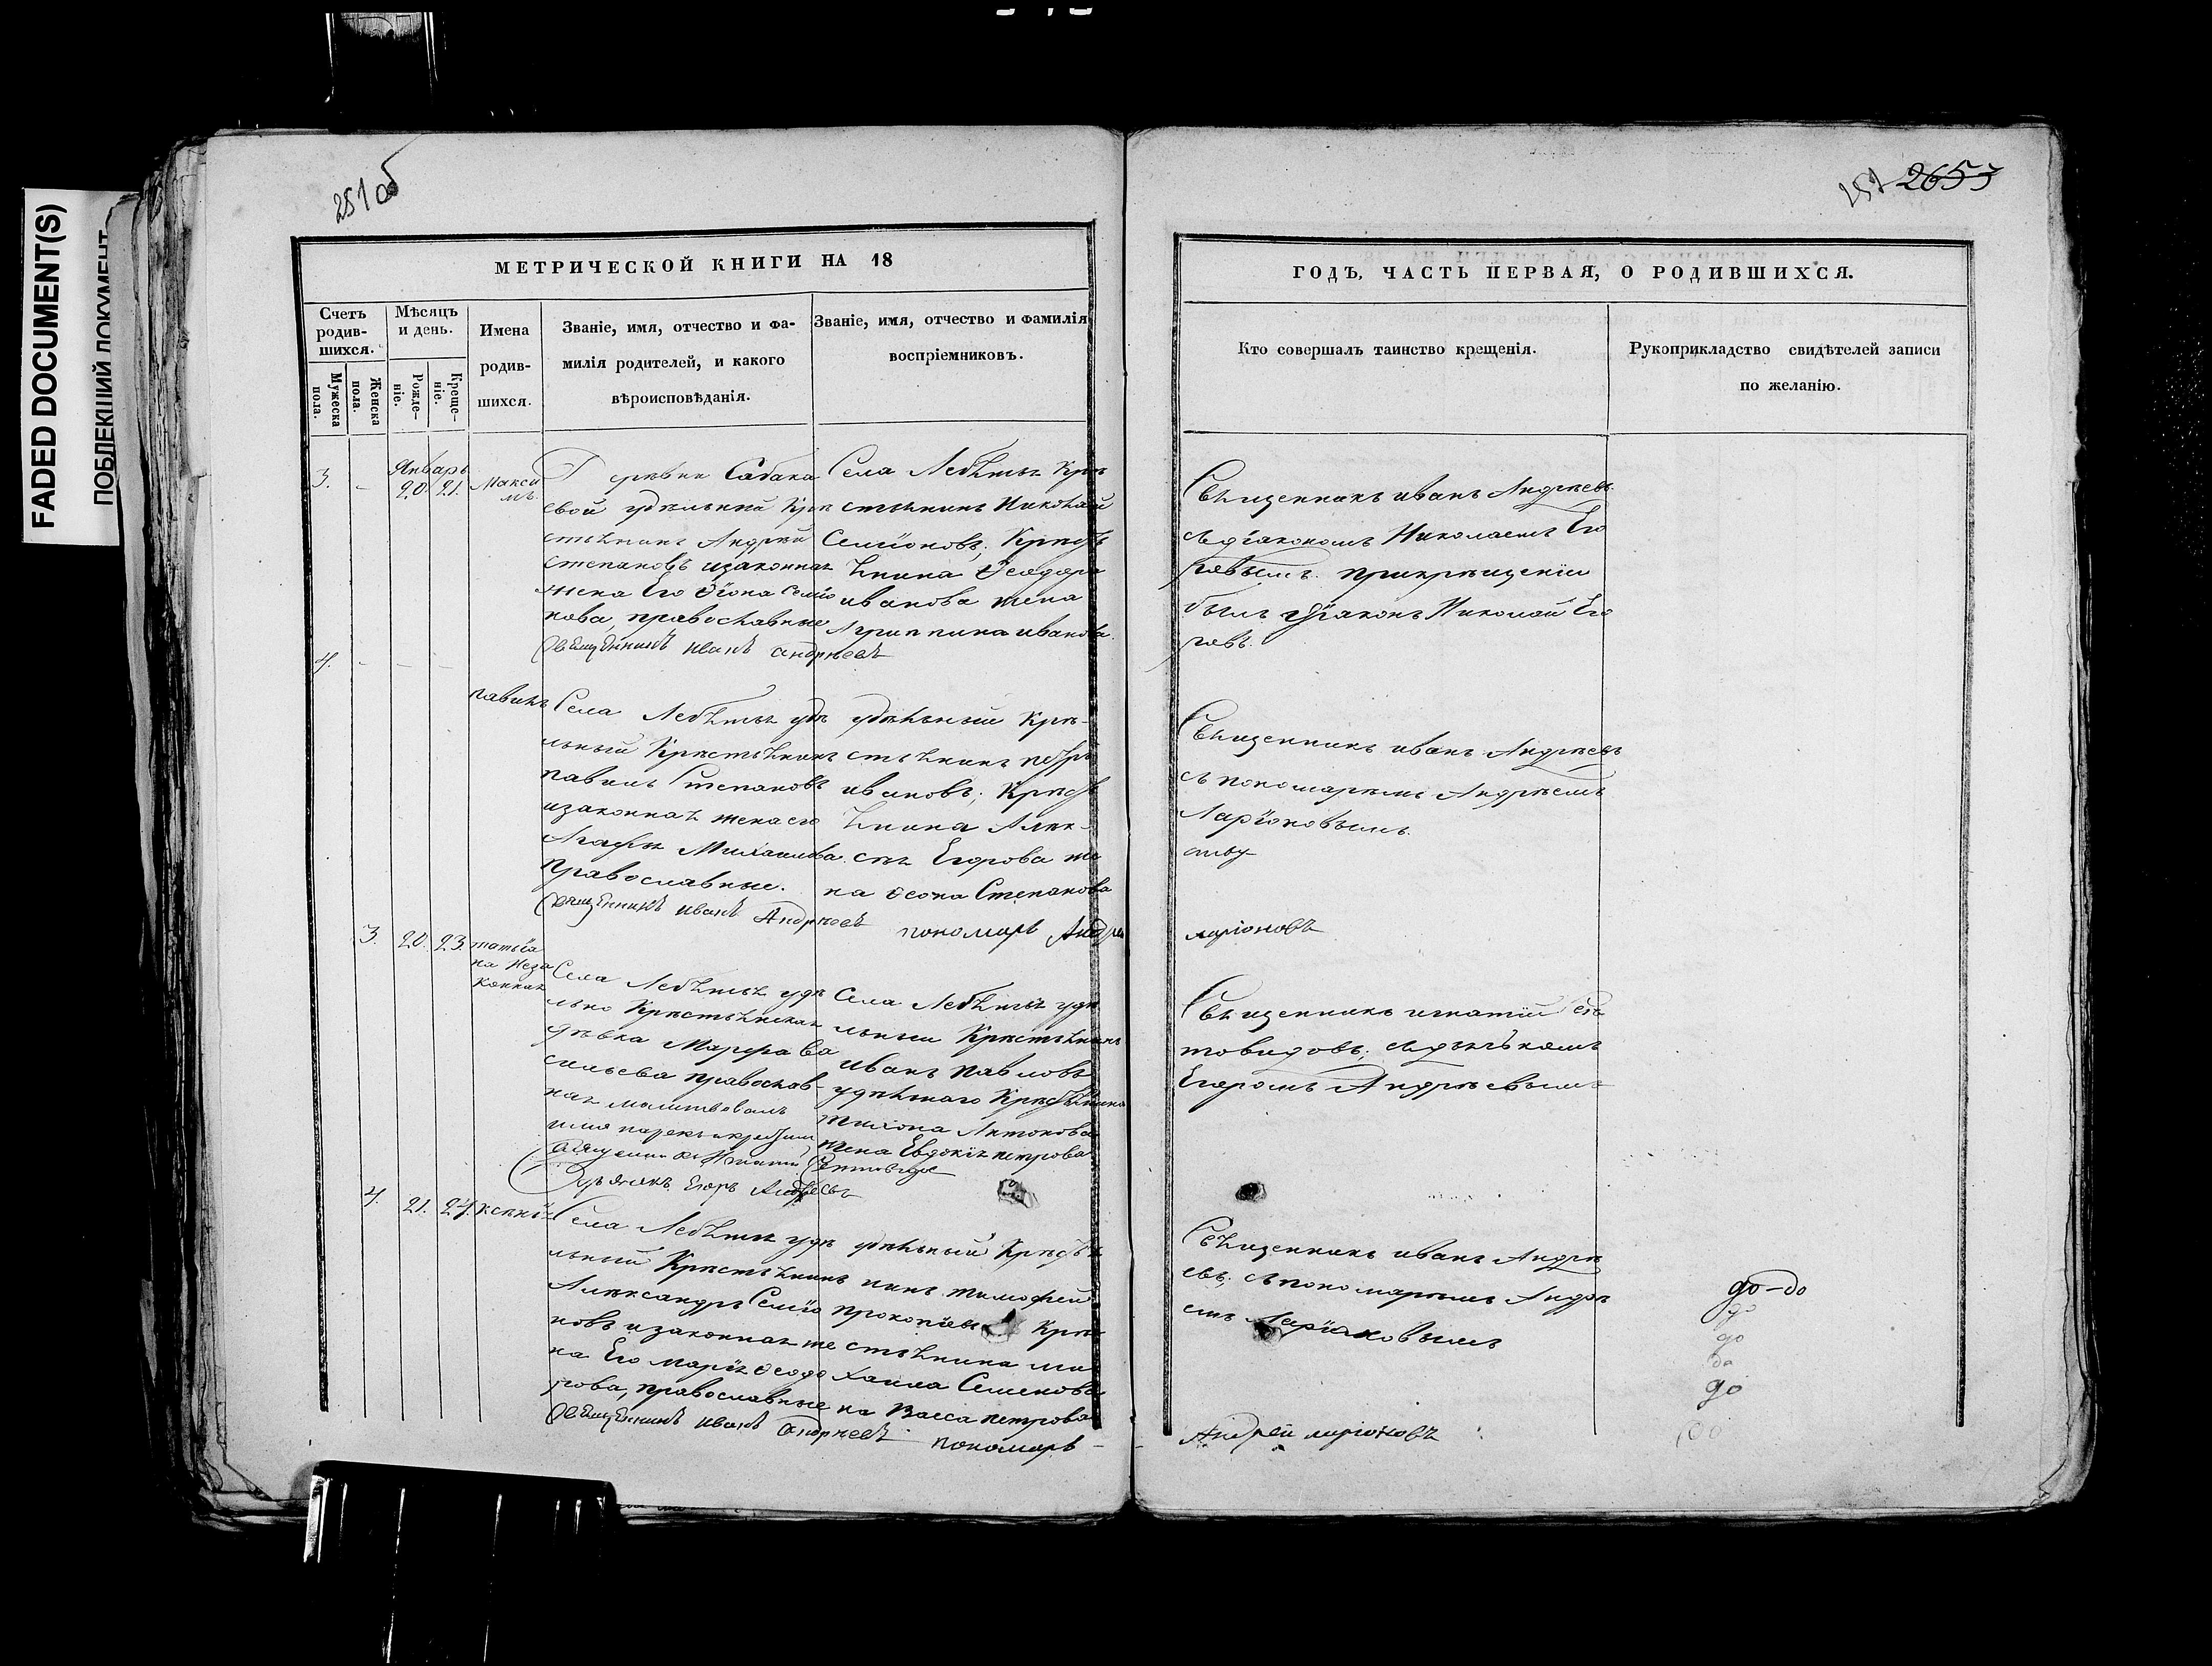 FADED DOCUMENT(S)
ПОБЛЕКШИЙ ДОКУМЕНТ
251 об
МЕТРИЧЕСКОЙ КНИГИ НА 18
Счетъ родившихся.
Мужеска пола.
Женска пола.
Мѣсяцъ и день.
Рожде-ніе.
Креще-ніе.
Имена
родив-
шихся.
Званіе, имя, отчество и фа-
милія родителей, и какого
вѣроисповѣданія.
Званіе, имя, отчество и фамилія
воспріемниковъ.
3. - Январь
20. 21.
Макси
мъ
свой удѣльный Крѣ
стьѣнинъ Андрѣй
Степановъ изаконнаѣ
жена Его Ѳіона Семіо
нова, православные
Свѣщенникъ иванъ андрѣевъ
Села Лебѣжьѣ Крѣ
стьѣнинъ Николай
Семіоновъ; Крѣсть
ѣнина Ѳеодора
иванова жена
Агриппина иванова.
4. - - -
павилъ
Села Лебѣжьѣ удѣ
льный Крѣстьѣнинъ
павилъ Степановъ
изаконнаѣ жена его
Агафьѣ Михаилова
православные.
Свѣщенникъ иванъ Андрѣевъ
удѣльный Крѣ-
стьѣнинъ пётръ
ивановъ; Крѣсть
ѣнина Алѣк-
сѣѣ Егорова же
на Ѳеона Степанова
пономарь Андрей
3. 20. 23.
татьіа
на Неза
коннаѣ
Села Лебѣжьѣ удѣ
льно Крѣстьѣнскаѣ
дѣвка Марфа Ва
сильева православ-
наѣ молитвовалъ
имя нарекъ и крестилъ
Священникъ Игнатий
Дьячекъ Егоръ Андреевъ
Села Лебѣжьѣ удѣ
льный Крѣстьѣнинъ
иванъ павловъ
удѣльнаго Крѣстьѣнина
тихона Антонова
жена Евдокіѣ петрова
4. 21. 24. ксѣніѣ
Села Лебѣжьѣ удѣ
льный Крѣстьѣнинъ
Алѣксандръ Семіо
новъ изаконнаѣ же
на Его маріѣ Ѳеодо
рова, православные
Свѣщенникъ иванъ андрѣевъ
удѣльный Крѣстьѣ
нинъ тимофей
прокопіевъ Крѣ
стьѣнина ми
хаила Семенова
на Васса петрова
пономарь -
2653
ГОДЪ, ЧАСТЬ ПЕРВАЯ, О РОДИВШИХСЯ.
Кто совершалъ таинство крещенія.
Рукоприкладство свидѣтелей записи
по желанію.
Свѣщенникъ иванъ Андрѣевъ
съ діакономъ Николаемъ Его
ровымъ. прикрѣщеніи
былъ діаконъ Николай Его
ровъ.
Свѣщенникъ иванъ Андрѣевъ
съ пономарѣмъ Андрѣемъ
Ларіоновымъ.
ларіоновъ
Свѣщенникъ игнатій Свѣ
товидовъ; съ дьячькомъ
Егоромъ Андрѣевымъ
Свѣщенникъ иванъ Андрѣ
евъ; съ пономарѣмъ Андрѣ
емъ Ларіоновымъ
Андрей ларіоновъ
до-до
до
до
да
до